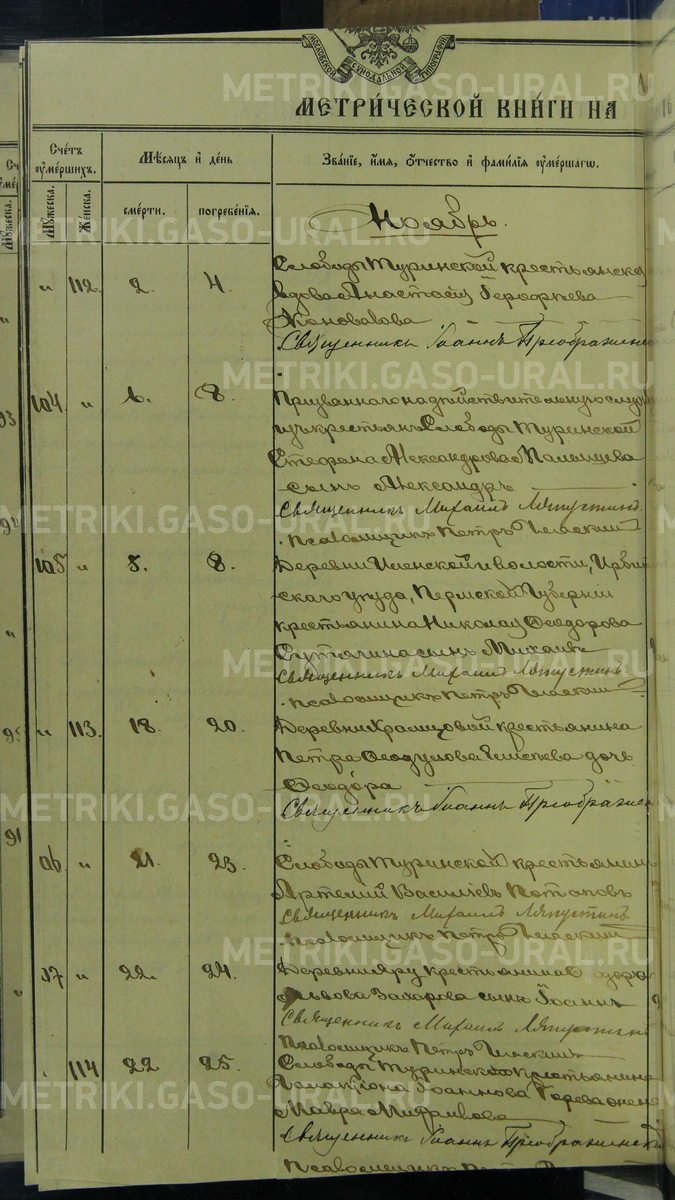 МОСКОВСКОЙ СѴНОДАЛЬНОЙ ТИПОГРАФІИ
METRIKI.GASO-URAL.RU
МЕТРИ́ЧЕСКОЙ КНИ́ГИ НА
Сче́тъ ᲂуме́ршихъ.
Мѣ́сяцъ и де́нь
Зва́ніе, и́мя, ѻ́тчество и фами́лія ᲂуме́ршагѡ.
Мꙋ́жеска.
Же́нска.
сме́рти.
погребе́нія.
Ноябрь.
" 112 2. 4. Слободы Туринской крестьянска
вдова Анастасія Георгиева
Коновалова
Священникъ Іоаннъ Преображенс
104. " 6. 8. Призваннаго на дѣйствительную служ
изъ крестьянъ Слободы Туринской
Стефана Александрова
сынъ Александръ
Священникъ Михаилъ Ляпустинъ.
Псаломщикъ Петръ
105 " 5. 8. Деревни волости, Ирбит
скаго уѣзда, Пермской Губерніи
крестьянина Николая Ѳеодорова
сынъ Михаилъ
Священникъ Михаилъ Ляпустинъ.
Псаломщикъ Петръ
" 113. 18. 20. Деревни крестьянина
Петра Ѳеодулова дочь
Ѳеодора
Священникъ Іоаннъ Преображен
106 " 21. 23. Слободы Туринской крестьянин
Артемій Васильевъ Потаповъ
Священникъ Михаилъ Ляпустинъ.
Псаломщикъ Петръ
107 " 22. 24. Деревни Яру крестьянина
Львова Захарова сынъ Іоаннъ
Священникъ Михаилъ Ляпустинъ
Псаломщикъ Петръ
114 22 25. Слободы Туринской крестьянина
Іоаннова жена
Мавра
Священникъ Іоаннъ Преображенскій
Псаломщикъ